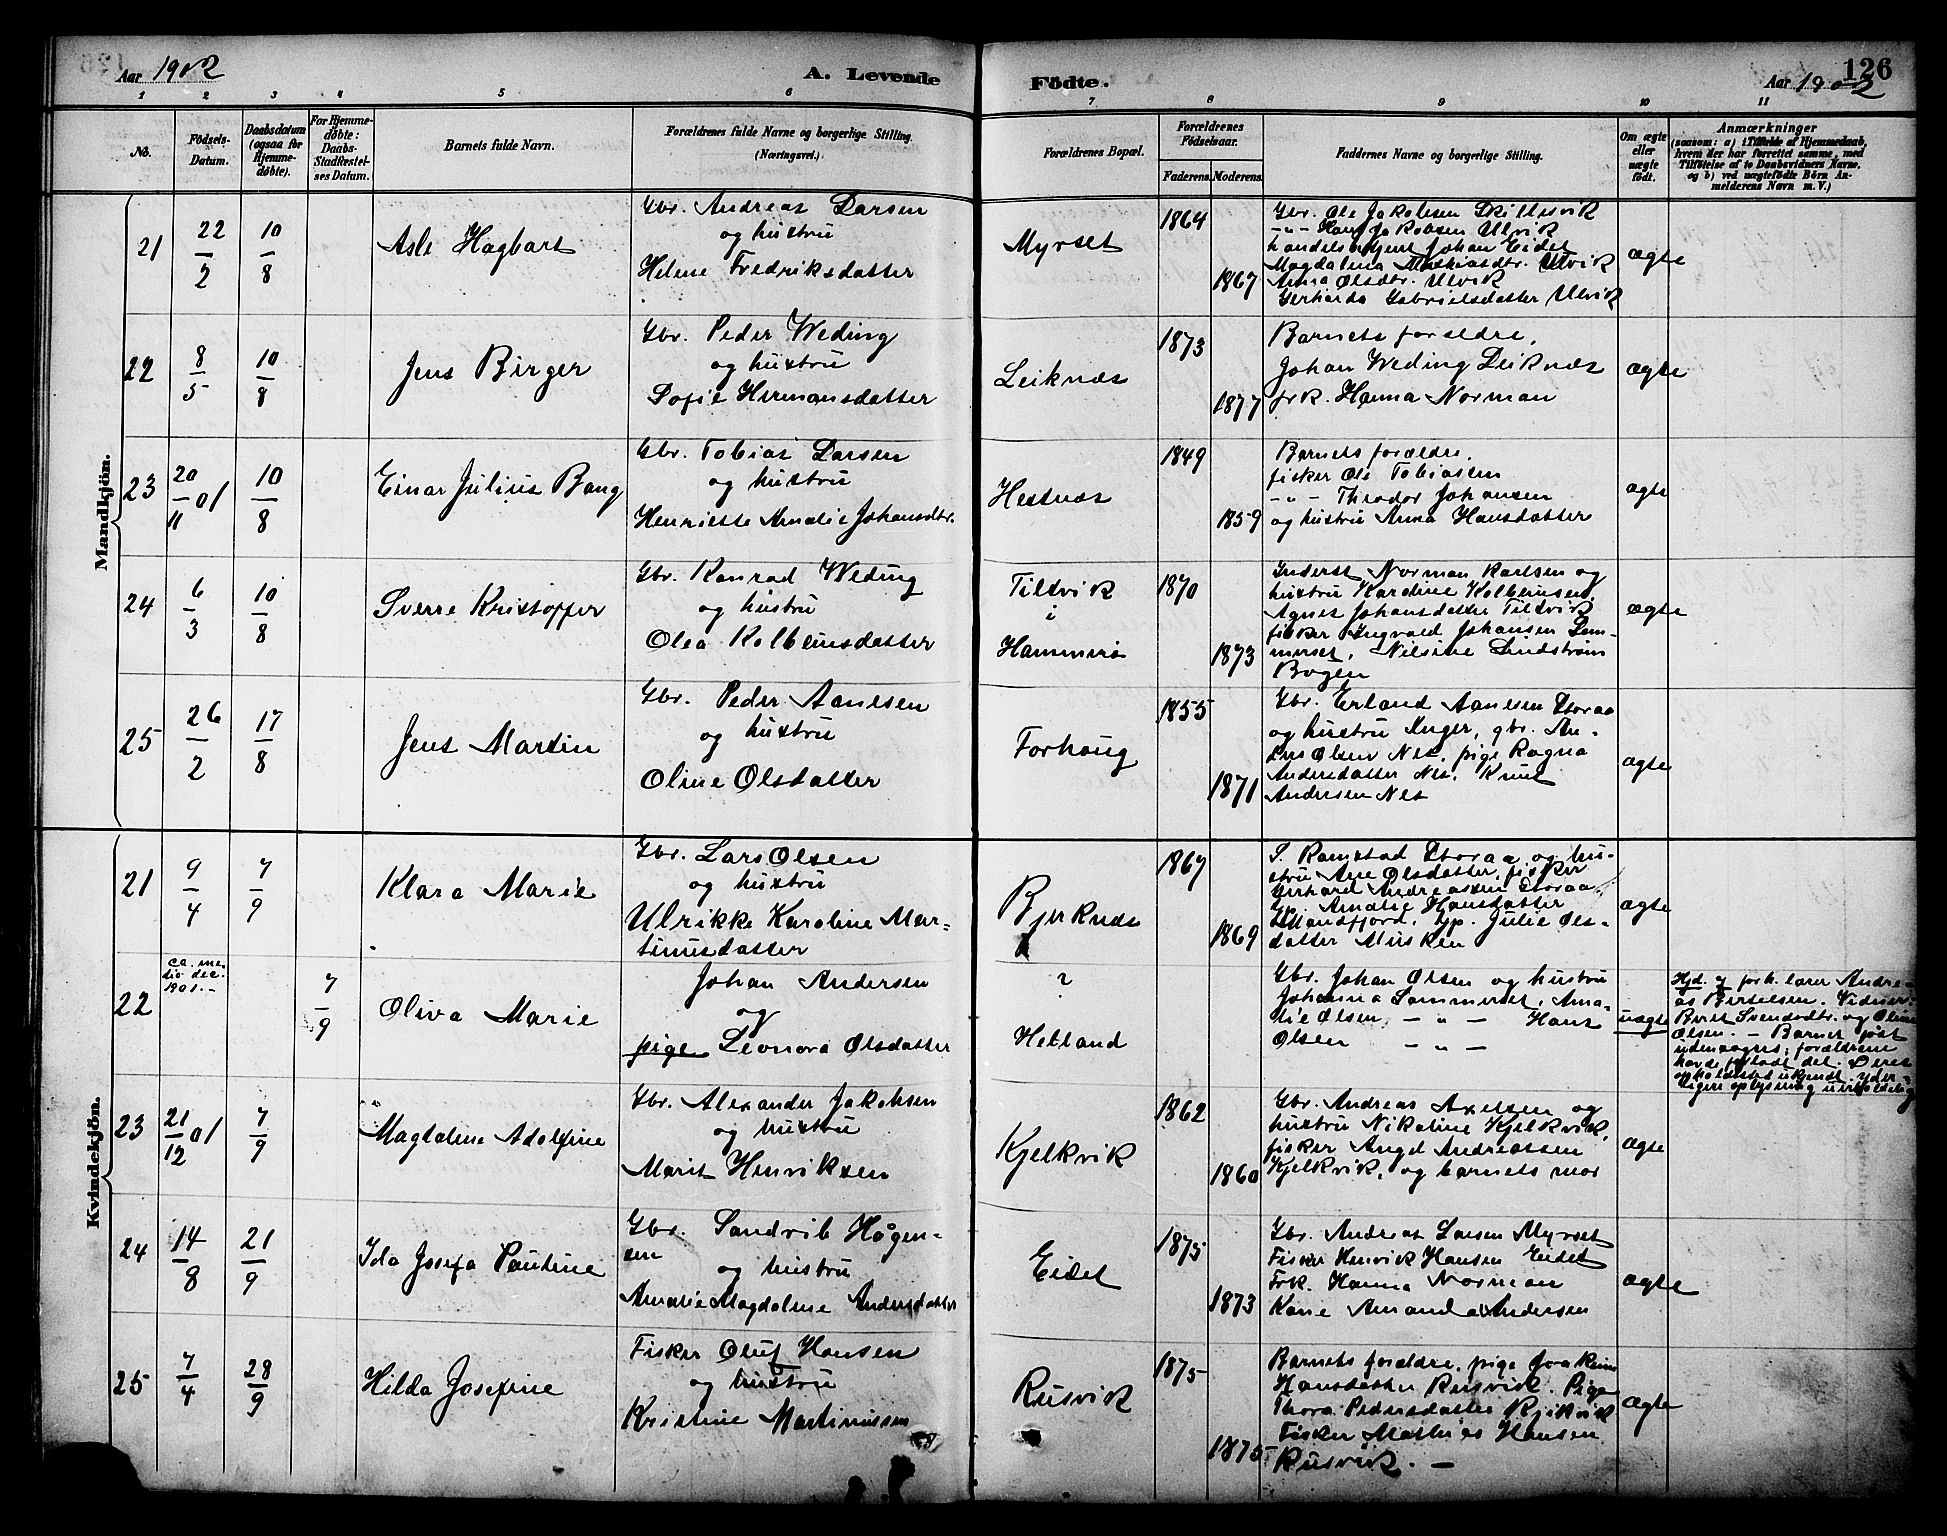 Aar 1902
A. Levende
Födte.
Aar 1902
126
1 2 3 4 5 6 7 8 9 10 11
No.
Födsels-
Datum.
Daabsdatum
(ogsaa for
Hjemme-
døbte).
For Hjemme-
døbte:
Daabs-
Stadfestel-
ses Datum.
Barnets fulde Navn.
Forældrenes fulde Navne og borgerlige Stilling.
(Næringsvei.)
Forældrenes Bopæl.
Forældrenes
Fødselsaar.
Faderens. Moderens.
Faddernes Navne og borgerlige Stilling.
Om ægte
eller
uægte
født.
Anmærkninger
(saasom: a) i Tilfælde af Hjemmedaab,
hvem der har forrettet samme, med
Tilføielse af to Daabsvidners Navne,
og b) ved uægtefødte Börn An-
melderens Navn m. V.)
Mandkjön.
21
22/2
10/8
Asle Hagbart
Gbr. Andreas Larsen
og hustru
Helene Fredriksdatter
Myrset
1864
1867
Gbr. Ole Jakobsen Skillesvik
-"- Hans Jakobsen Ulvik
handelsbetjent Johan Eidet
Magdalena Mathiasdtr. Ulvik
Anna Olsdtr. Ulvik
Gerharda Gabrielsdatter Ulvik
ægte
22
8/5
10/8
Jens Birger
Gbr. Peder Weding
og hustru
Sofie Hermansdatter
Leiknæs
1873
1877
Barnets forældre,
Johan Weding Leiknæs
frk. Hanna Norman
ægte
23
20/11 01
10/8
Einar Julius Bang
Gbr. Tobias Larsen
og hustru
Henriette Amalie Johansdtr.
Hestnæs
1849
1859
Barnets forældre,
fisker Ole Tobiasen
-"- Theodor Johansen
og hustru Anna Hansdatter
ægte
24
6/3
10/8
Sverre Kristoffer
Gbr. Konrad Weding
og hustru
Olea Kolbeinsdatter
Tiltvik
i
Hammerø
1870
1873
Inderst Norman Karlsen og
hustru Kardine Kolbeinsen,
Agnes Johansdatter Tiltvik
fisker Ingvald Johansen Sem-
merset, Nilsine Lindstrøm
Bogen
ægte
25
26/2
17/8
Jens Martin
Gbr. Peder Aanesen
og hustru
Oline Olsdatter
Forhaug
1855
1871
Gbr. Erland Aanesen Storaa
og hustru Inger, gbr. An-
ders Olsen Nes, pige Ragna
Andersdatter Nes, Knut
Andersen Nes
ægte
Kvindekjön.
21
9/4
7/9
Klara Marie
Gbr. Lars Olsen
og hustru
Ulrikke Karoline Mar-
tinusdatter
Bjerknæs
1867
1869
S. Ramstad Storaa og hu-
stru Ane Olsdatter, fisker
Gerhard Andreassen Storaa
Gp. Amalie Hansdatter
Mandfjord, gp. Julie Ols-
datter Musken
ægte
22
ca. me-
dio dec.
1901.-
7/9
Oliva Marie
Johan Andersen
og
pige Leonora Olsdatter
?
Helland
Gbr. Johan Olsen og hustru
Johanna Sommerset, Ama-
lie Olsen -"- Hans
Olsen -"-
uægte
Hjd. af forh. lærer Andre-
as Bertelsen. Vidner:
Berit Svendsdtr. og Oline
Olsen. - Barnet født
udensogns; forældrene
havde forladt det. Deres
opholdssted ukjendt. yder-
ligere oplysning uerholdelig
23
21/12 01
7/9
Magdalene Adolfine
Gbr. Alexander Jakobsen
og hustru
Marit Henriksen
Kjelkvik
1862
1860
Gbr. Andreas Axelsen og
hustru Nikoline Kjelkvik,
fisker Angel Andreassen
Kjelkvik, og barnets mor
ægte
24
14/8
21/9
Ida Josefa Pauline
Gbr. Sandvib Hågen-
sen
og hustru
Amalie Magdalene Andersdatter
Eidet
1875
1873
Gbr. Andreas Larsen Myrset
Fisker Henrik Hansen Eidet
Frk. Hanna Norman
Kone Amanda Andersen
ægte
25
7/4
28/9
Hilda Josefine
Fisker Oluf Hansen
og hustru
Kristine Martinussen
Rusvik
1875
1875
Barnets forældre, pige Joakima
Hansdatter Rusvik. Pige
Thora Pedersdatter
Fisker Mathias Hansen
Rusvik. -
ægte